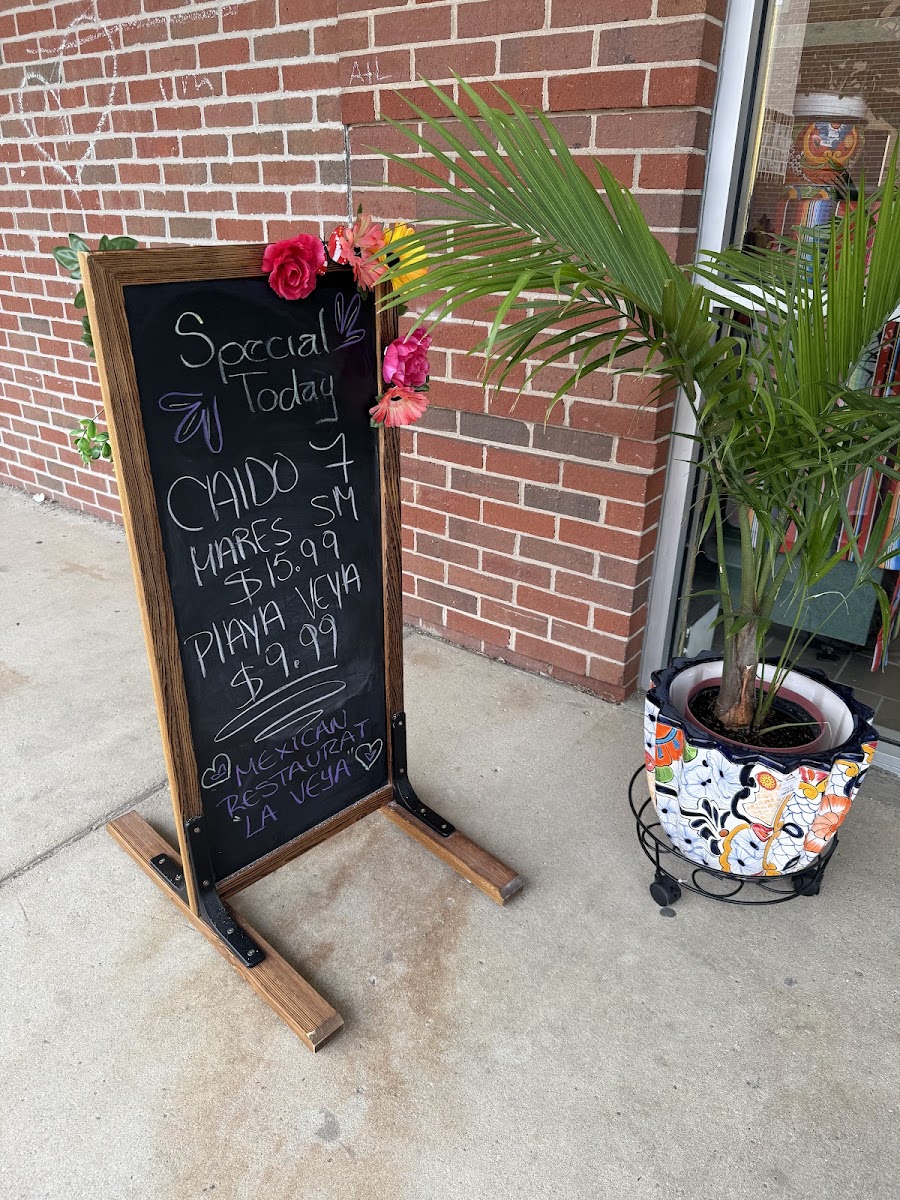 Special
Today
CAIDO 7
MARES SM
$15.99
PLAYA VEYA
$9.99
"MEXICAN
RESTAURAT
LA VEYA"
AIL